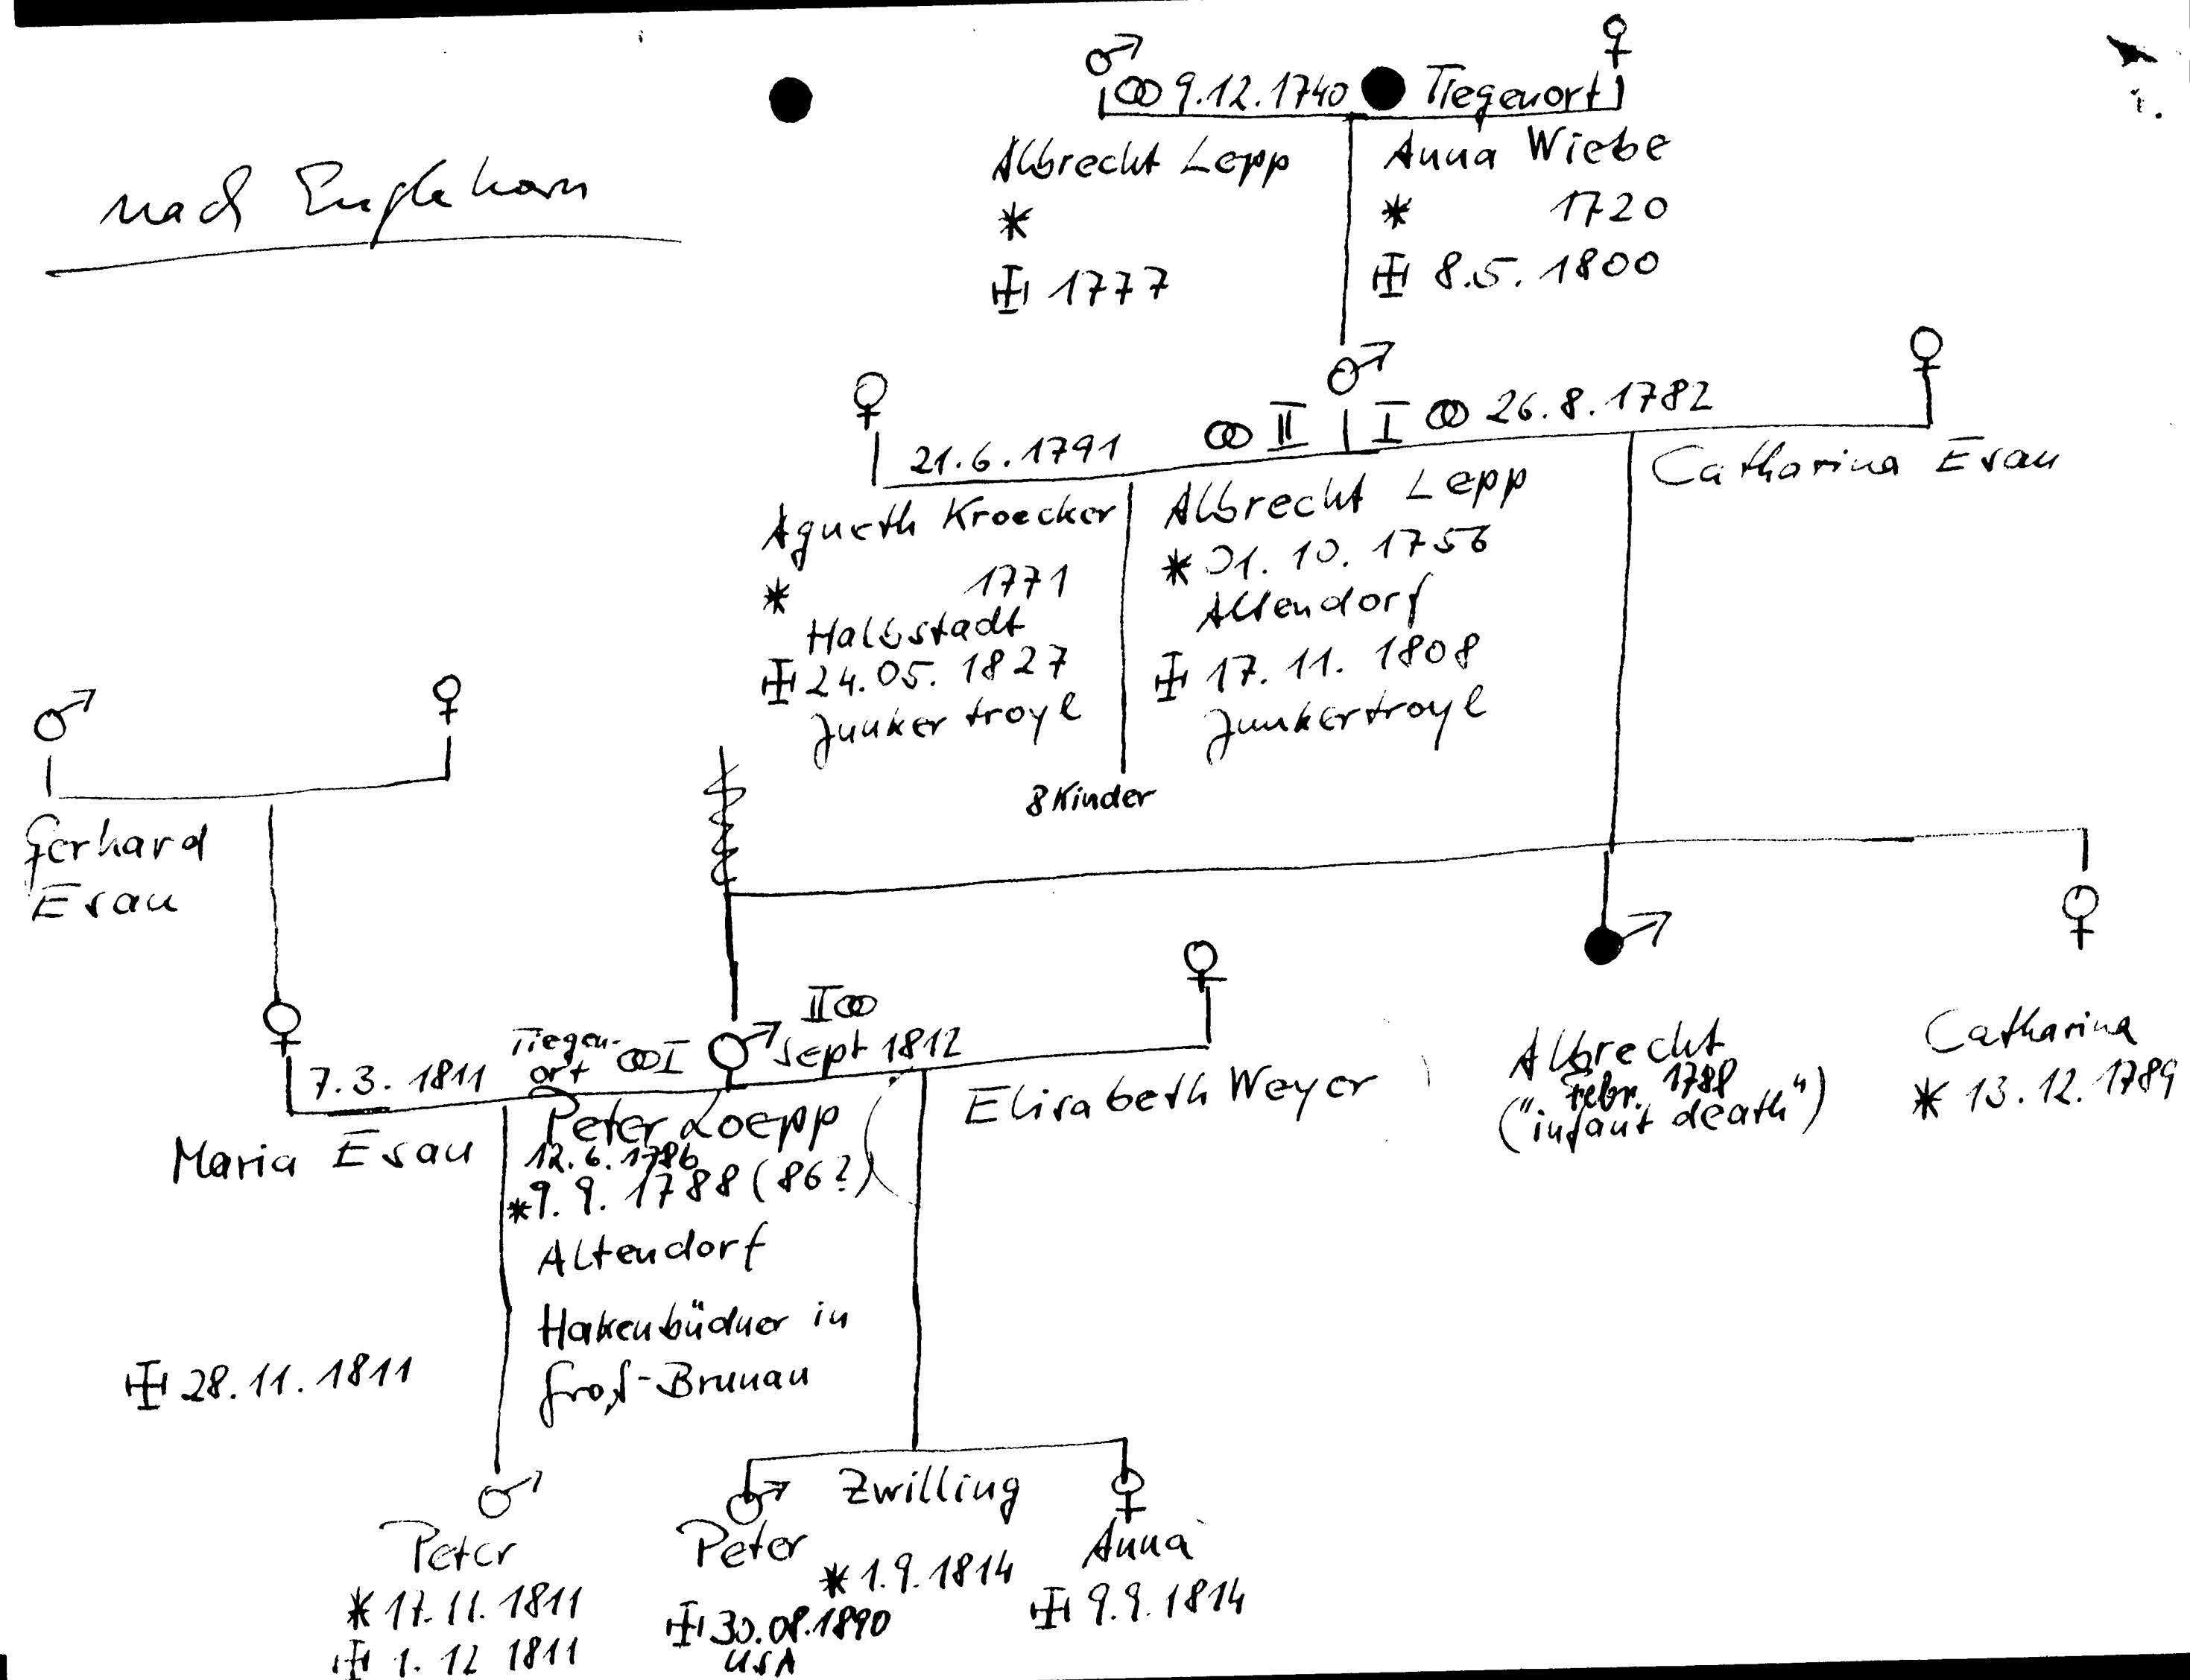 ♂ ♀
⚭ 9.12.1740 Tiegenort
nach
Albrecht Lepp
*
✠ 1777
Anna Wiebe
* 1720
✠ 8.5.1800
♀ ♂ ♀
21.6.1791 ⚭ II I ⚭ 26.8.1782
Agneth Kroecker
* 1771
Halbstadt
✠ 24.05.1827
Junkertroyl
Albrecht Lepp
* 01.10.1756
Altendorf
✠ 17.11.1808
Junkertroyl
Catharina Esau
8 Kinder
♂ ♀
Gerhard
Esau
♀
7.3.1811 Tiegen-
ort ⚭ I ♂ II ⚭
Sept 1812
♀
Maria Esau
✠ 28.11.1811
Peter Loepp
12.6.1786
* 9.9.1788 (86?)
Altendorf
Hakenbüdner in
Groß-Brunau
Elisabeth Weyer
♂
Albrecht
Febr. 1788
("infant death")
♀
Catharina
* 13.12.1789
♂
Peter
* 17.11.1811
✠ 1.12 1811
♂ Zwilling ♀
Peter
* 1.9.1814
✠ 30.08.1890
USA
Anna
✠ 9.9.1814